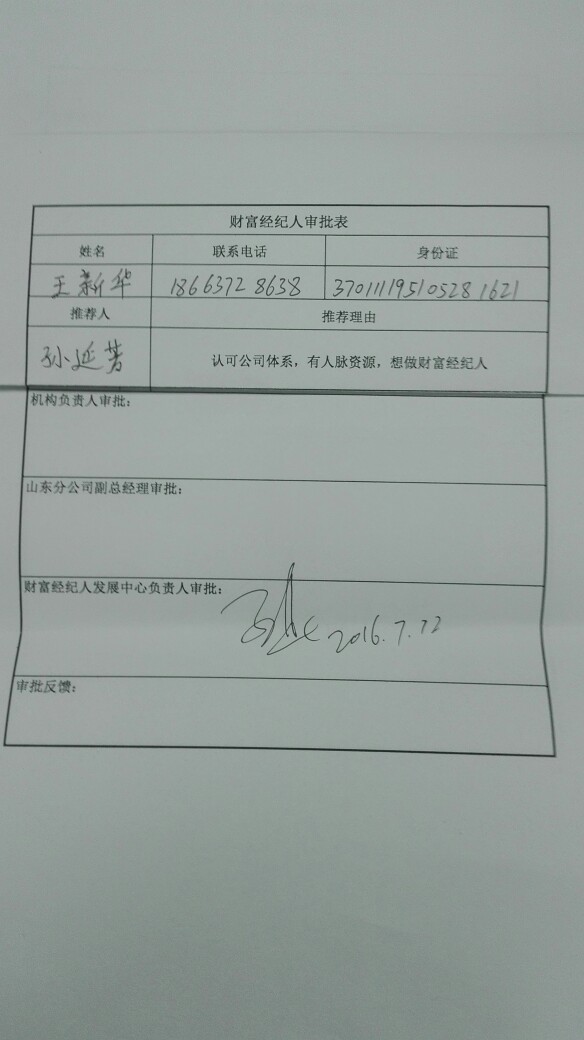 财富经纪人审批表
姓名 联系电话 身份证
王新华 18663728638 370111195105281621
推荐人 推荐理由
孙延芳 认可公司体系，有人脉资源，想做财富经纪人
机构负责人审批：
山东分公司副总经理审批：
财富经纪人发展中心负责人审批：
2016.7.22
审批反馈：